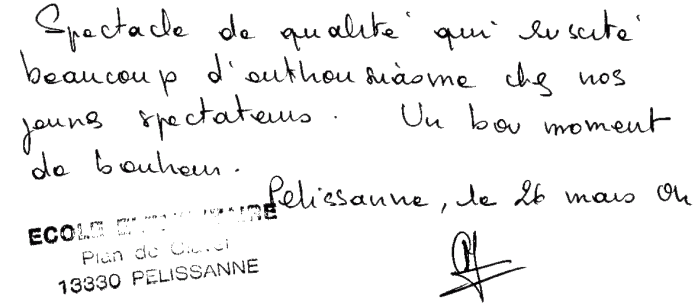 Spectacle de qualité qui suscite
beaucoup d'enthousiasme chez nos
jeunes spectateurs. Un bon moment
de bonheur.
Pelissanne, le 26 mars 04
ECOLE
Plan de Clavel
13330 PELISSANNE